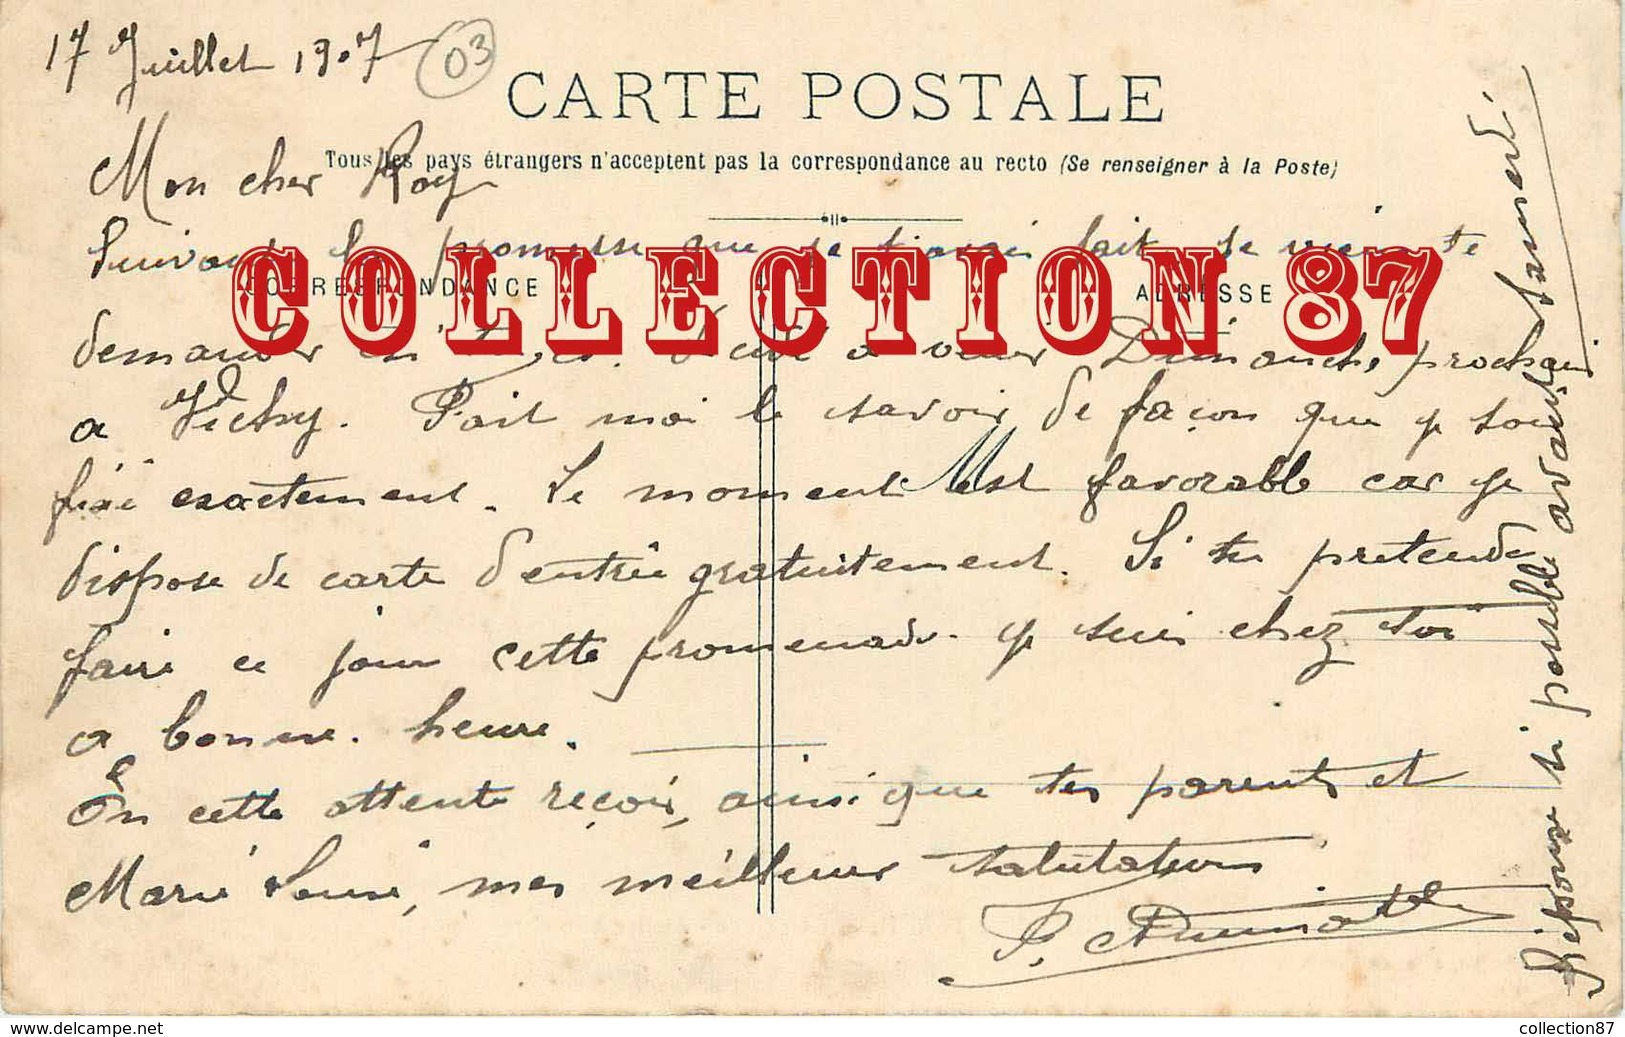 17 Juillet 1907
03
CARTE POSTALE
Tous les pays étrangers n'acceptent pas la correspondance au recto (Se renseigner à la Poste)
Mon cher Roy
Suivant la promesse que je t'avais fait je viens te
CORRESPONDANCE
ADRESSE
COLLECTION 87
demander si tu es décidé a venir Dimanche prochain
a Vichy. Fait moi le savoir de façon que je sois
fixé exactement. Le moment est favorable car je
dispose de carte d'entrée gratuitement. Si tu pretends
faire ce jour cette promenade. je suis chez toi
a bonne heure.
En cette attente reçois, ainsi que tes parents et
Marie Louise, mes meilleures salutations
Réponse si possible avant samedi
delcampe.net
collection87